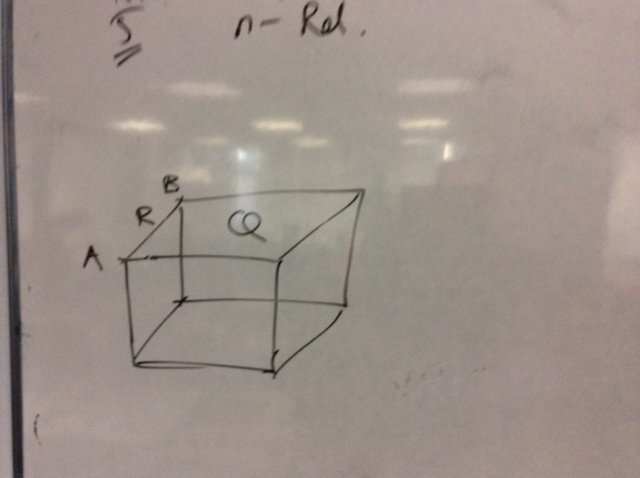 n - Rel.
B
R
Q
A